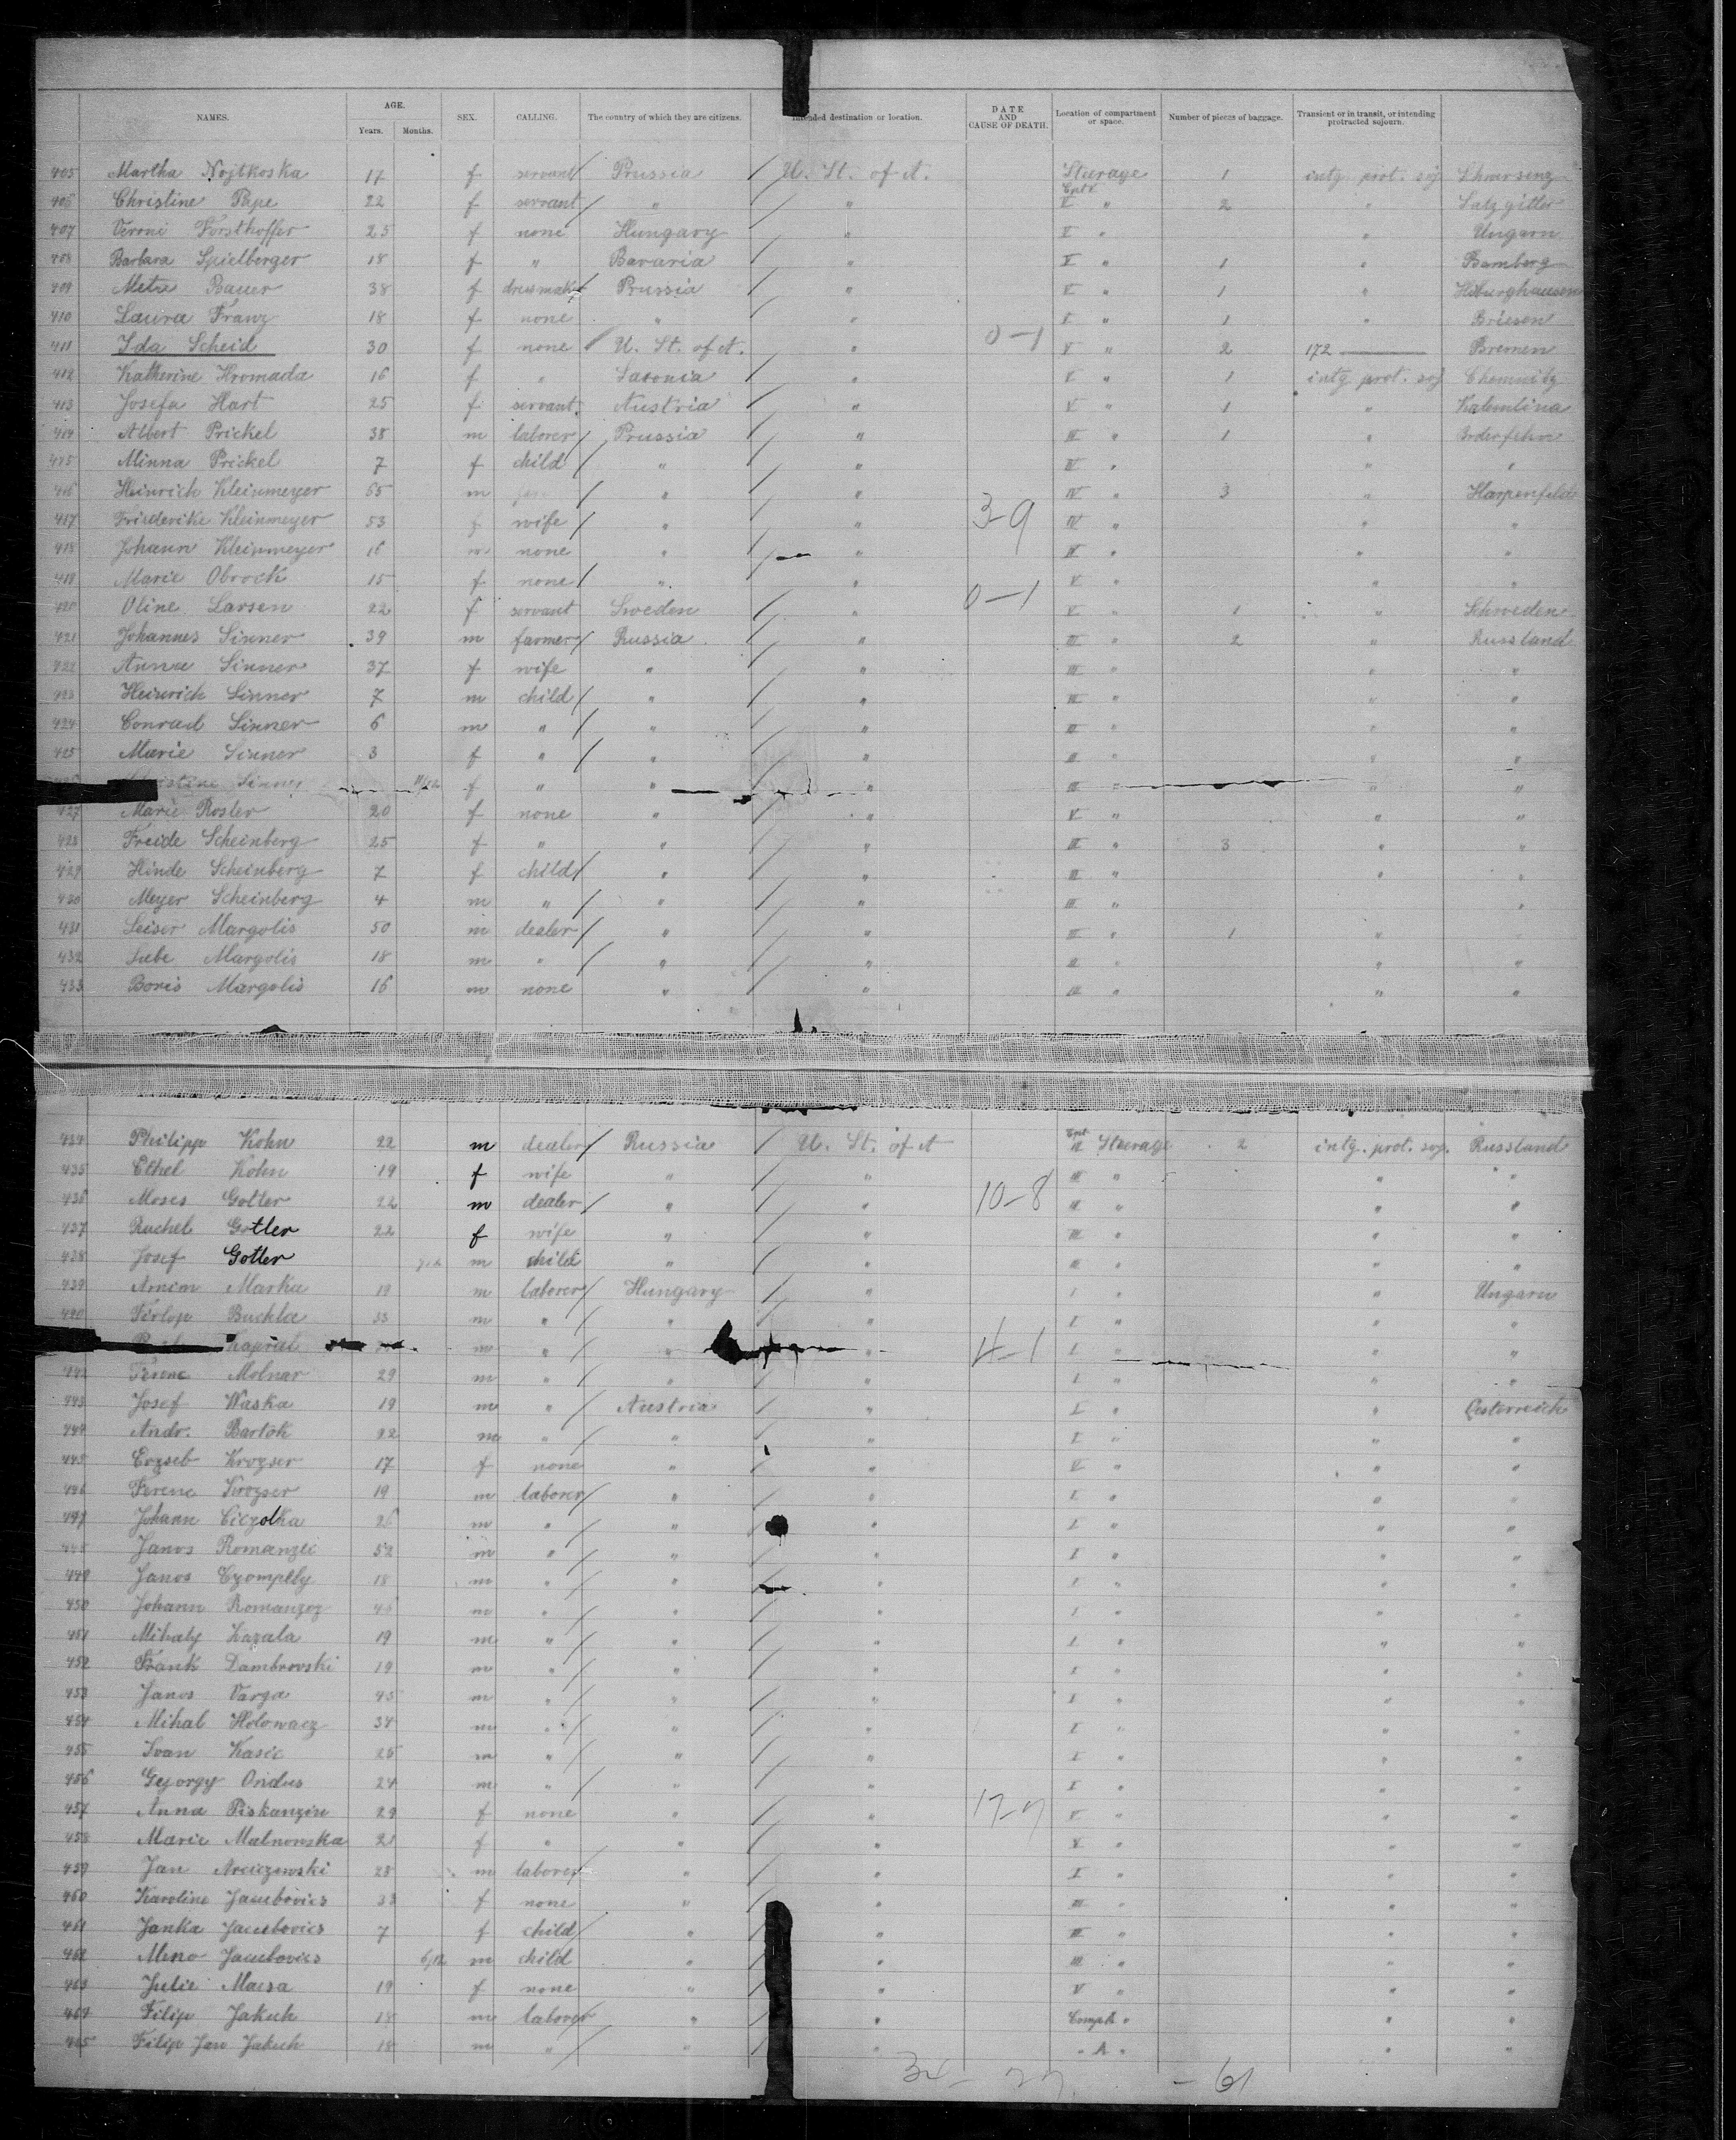 NAMES. AGE. Years. Months. SEX. CALLING. The country of which they are citizens. Intended destination or location. DATE AND CAUSE OF DEATH. Location of compartment or space. Number of pieces of baggage. Transient or in transit, or intending protracted sojourn.
405 Martha Nojtkoska 17 f servant Prussia U. St. of A. Steerage 1 intg. prot. soj. Schwersenz
406 Christine Pape 22 f servant " " Cpt. V " 2 " Salzgitter
407 Veroni Forsthoffer 25 f none Hungary " V " " Ungarn
408 Barbara Spielberger 18 f " Bavaria " V " 1 " Bamberg
409 Meta Bauer 38 f dressmak Prussia " V " 1 "
410 Laura Franz 18 f none " " V " 1 " Briesen
411 Ida Scheid 30 f none U. St. of A. " 0-1 V " 2 172 Bremen
412 Katherine Hromada 16 f " Saxonia " V " 1 intg. prot. soj. Chemnitz
413 Josefa Hart 25 f servant Austria " V " 1 " Kalentina
414 Albert Prickel 38 m laborer Prussia " III " 1 "
415 Minna Prickel 7 f child " " IV " " "
416 Heinrich Kleinmeyer 55 m " " IV " 3 " Harpenfeld
417 Friederike Kleinmeyer 53 f wife " " 3-9 IV " " "
418 Johann Kleinmeyer 16 m none " " IV " " "
419 Marie Obrock 15 f none " " V " " "
420 Oline Larsen 22 f servant Sweden " 0-1 V " 1 " Schweden
421 Johannes Sinner 39 m farmer Russia " III " 2 " Russland
422 Anna Sinner 37 f wife " " III " " "
423 Heinrich Sinner 7 m child " " III " " "
424 Conrad Sinner 6 m " " " III " " "
425 Marie Sinner 3 f " " " III " " "
Sinner 11/12 f " " " III " " "
427 Marie Rosler 20 f none " " V " " "
428 Freide Scheinberg 25 f " " " III " 3 " "
429 Hinde Scheinberg 7 f child " " III " " "
430 Meyer Scheinberg 4 m " " " III " "
431 Leiser Margolis 50 m dealer " " III " 1 " "
432 Liebe Margolis 18 m " " " III " " "
433 Boris Margolis 16 m none " " III " " "
434 Philipp Kohn 22 m dealer Russia U. St. of A Cpt. III Steerage 2 intg. prot. soj. Russland
435 Ethel Kohn 19 f wife " " III " " "
436 Moses Gotler 22 m dealer " " 10-8 III " " "
437 Rachel Gotler 22 f wife " " III " " "
438 Josef Gotler m child " " III " " "
439 Armin Marka 19 m laborer Hungary " I " " Ungarn
440 Buckla 33 m " " " I " " "
m " " " 4-1 I " " "
442 Ferenc Molnar 29 m " " " I " " "
443 Josef Waska 19 m " Austria " I " " Oesterreich
444 Andr. Bartok 22 m " " " I " " "
445 Erzseb Krozser 17 f none " " V " " "
446 Ferenc Krozser 19 m laborer " " I " " "
447 Johann Ciczolka 26 m " " " I " " "
448 Janos Romanzei 52 m " " " I " " "
449 Janos 18 m " " " I " " "
450 Johann Romanzoz 46 m " " " I " " "
451 Mihaly Kazala 19 m " " " I " " "
452 Frank Dambrovski 19 m " " " I " " "
453 Janos Varga 45 m " " " I " " "
454 Mihal Holowacz 34 m " " " I " " "
455 Ivan Kasic 25 m " " " I " " "
456 Gyorgy Ondus 24 m " " " I " " "
457 Anna Piskanzin 29 f none " " 17-7 V " " "
458 Marie Malnowska 21 f " " " V " " "
459 Jan Arciczewski 28 m laborer " " I " " "
460 Karoline Jacubovics 33 f none " " III " " "
461 Janka Jacubovics 7 f child " " III " " "
462 Meno Jacubovics 6/12 m child " " III " " "
463 Julie Macsa 19 f none " " V " " "
464 Filip Jakuch 18 m laborer " " Compt. " " "
465 Filip Jan Jakuch 18 m " " " " A " " "
- 61